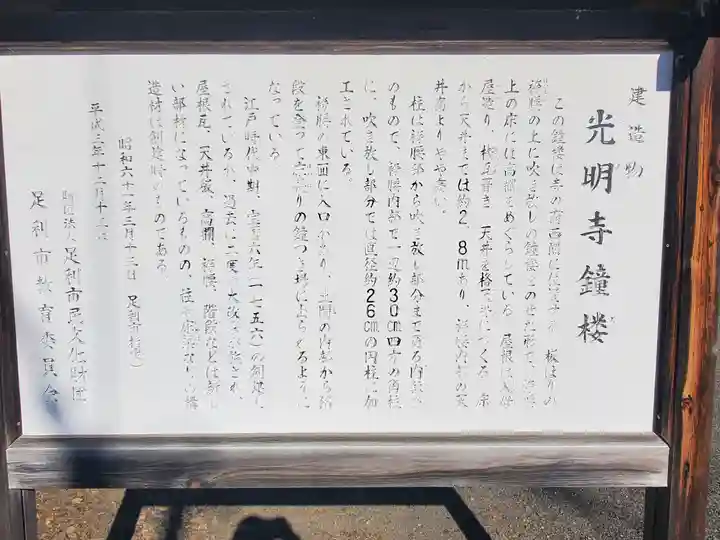 建造物
光明寺鐘楼
この鐘楼は寺の南西隅に位置する 板はりの
袴腰の上に吹き放しの鐘楼をのせた形で、袴腰
上の床には高欄をめぐらしている 屋根は入母
屋造り、桟瓦葺き 天井を格天井につくる 床
から天井までは約2.8mあり、袴腰内部の天
井高よりやや高い。
柱は袴腰部から吹き放し部分まで通る
のもので、袴腰内部で一辺約30cm四方の角柱
に、吹き放し部分では直径約26cmの円柱に加
工されている。
袴腰の東面に入口があり、土間の内部から階
段を登って の鐘つき場に上られるように
なっている
江戸時代中期、宝暦六年(一七五六)の創建と
されているが、過去に二度 大改修が施され、
屋根瓦、天井板、高欄、袴腰、階段などは新し
い部材になっているものの、柱や など の構
造材は創建時のものである
昭和六十一年三月十三日 足利市指定)
平成三年十二月十三日
財団法人 足利市民文化財団
足利市教育委員会